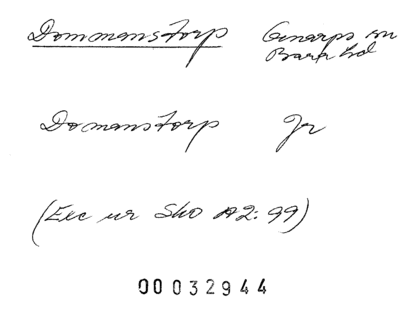 Dommanstorp Genarps sn
Bara hd
Domanstorp Jr
(Exc ur SkO A2:99)
00032944